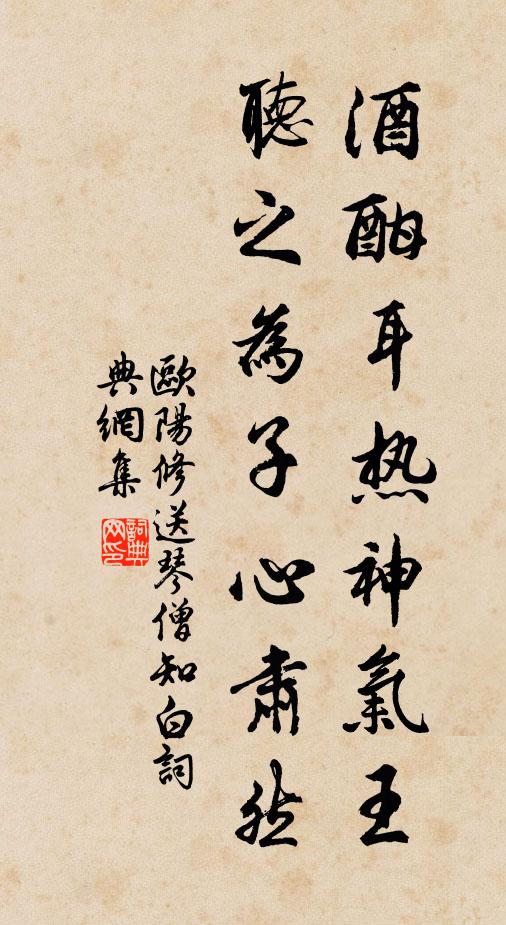 酒酣耳热神氣王
聽之為子心肅然
歐陽修送琴僧知白詞
典網集
詞典網印